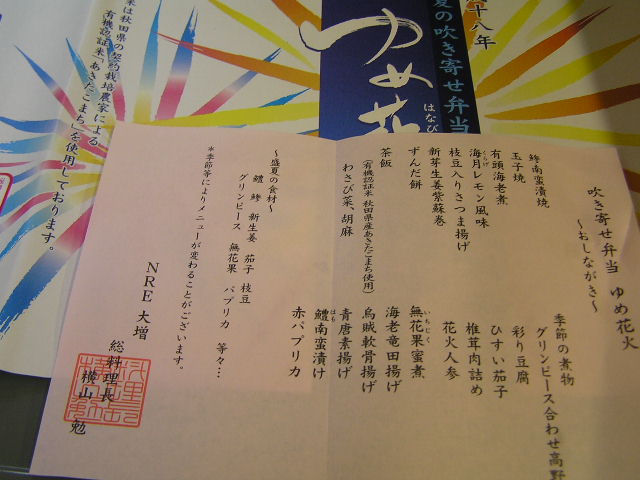 十八年
夏の吹き寄せ弁当
ゆめ花
はなび
米は秋田県の契約栽培農家による
有機認証米「あきたこまち」を使用しております。
吹き寄せ弁当 ゆめ花火
～おしながき～
鯵南蛮漬焼
玉子焼
有頭海老煮
海月レモン風味
くらげ
枝豆入りさつま揚げ
新芽生姜紫蘇巻
ずんだ餅
茶飯
(有機認証米 秋田県産あきたこまち使用)
わさび菜、胡麻
季節の煮物
グリンピース合わせ高野
彩り豆腐
ひすい茄子
椎茸肉詰め
花火人参
無花果蜜煮
いちじく
海老竜田揚げ
烏賊軟骨揚げ
青唐素揚げ
鱧南蛮漬け
はも
赤パプリカ
～盛夏の食材～
鱧 鯵 新生姜 茄子 枝豆
グリンピース 無花果 パプリカ 等々…
*季節等によりメニューが変わることがございます。
NRE 大増
総料理長
横山 勉